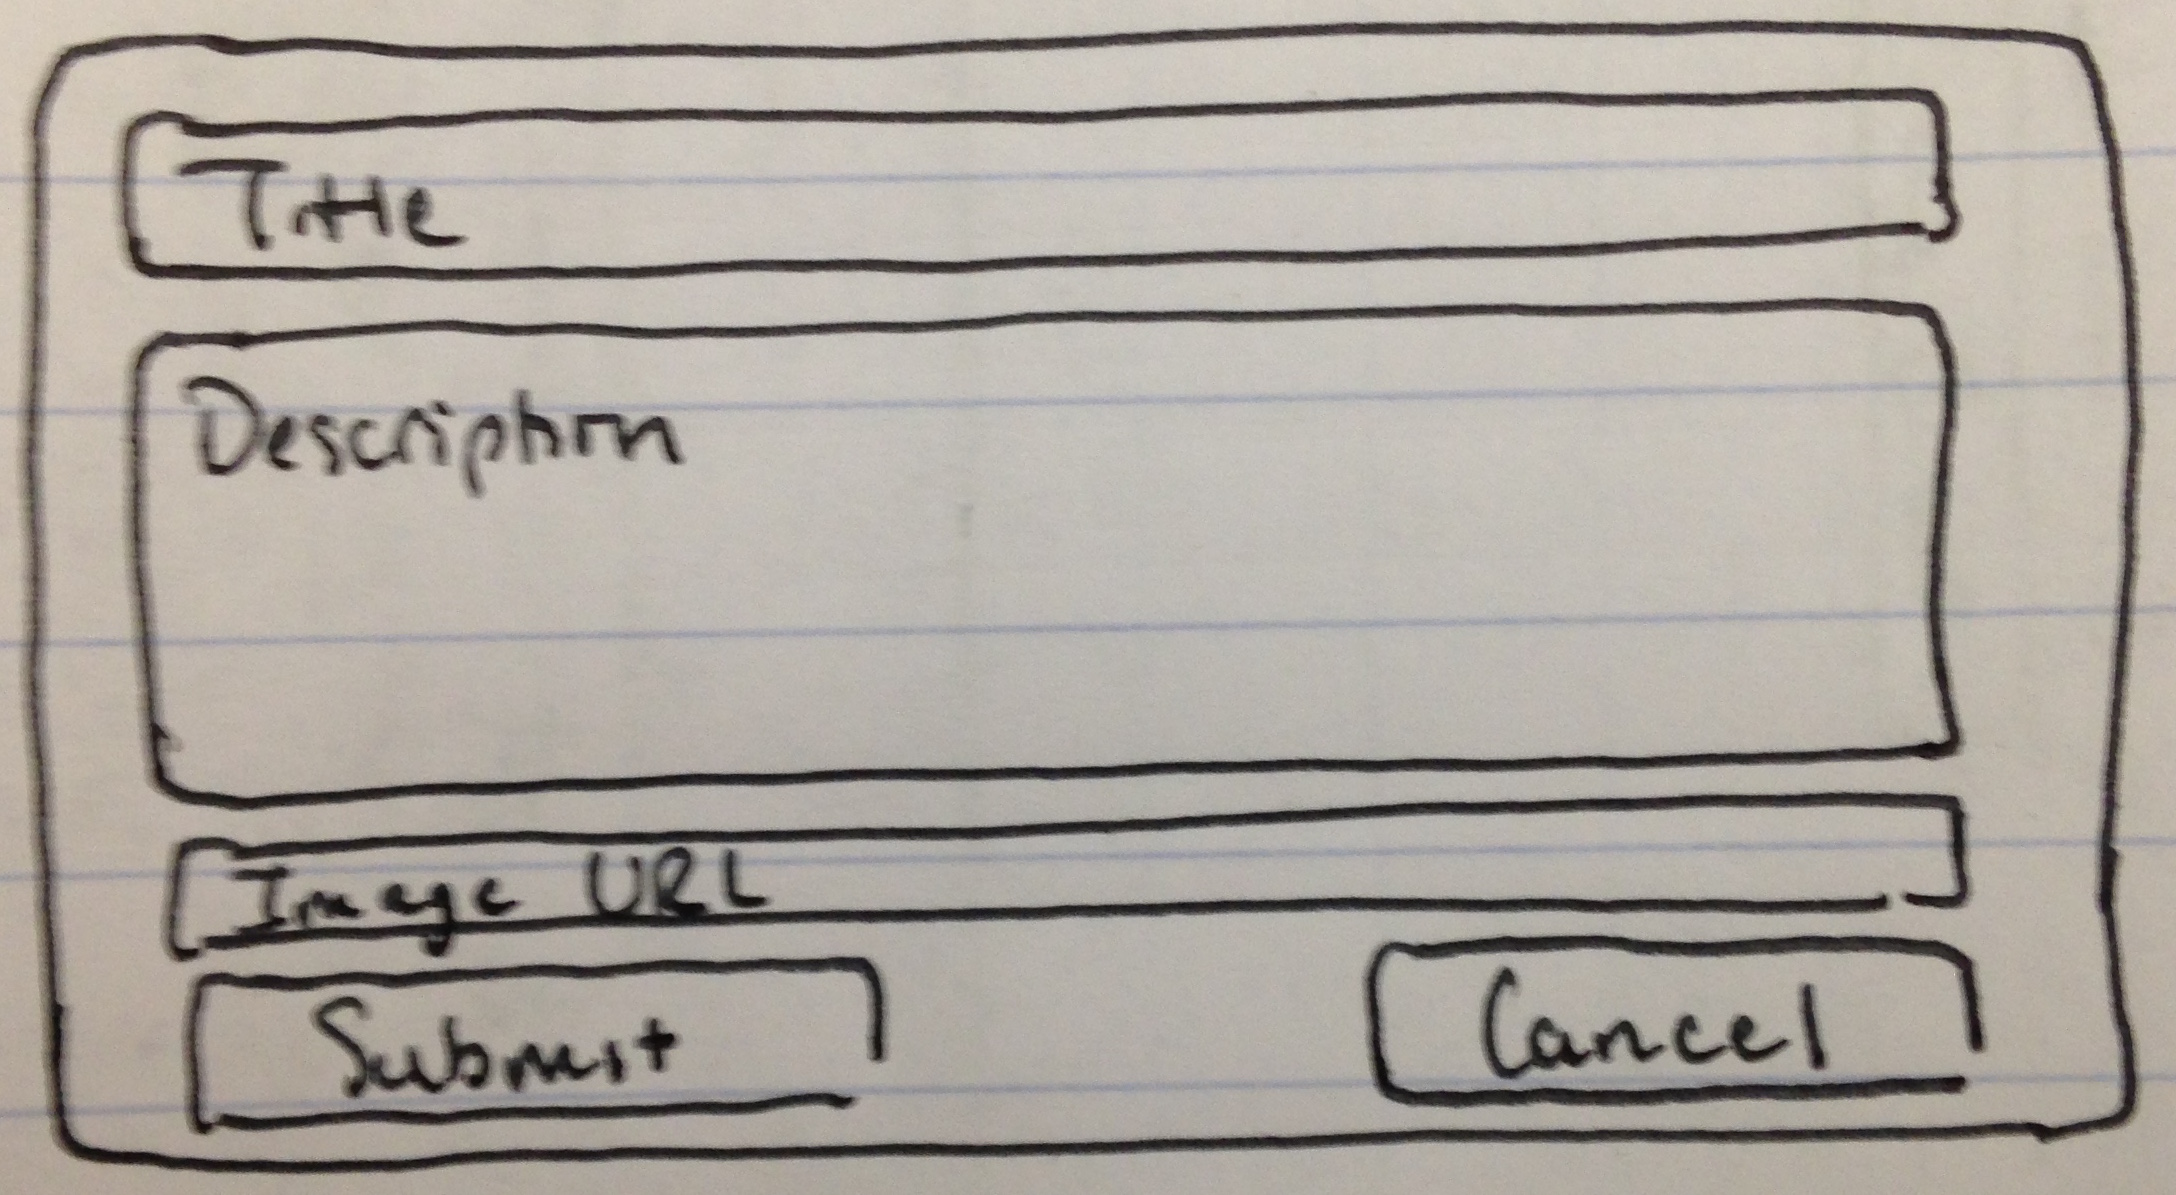 Title
Description
Image URL
Submit
Cancel